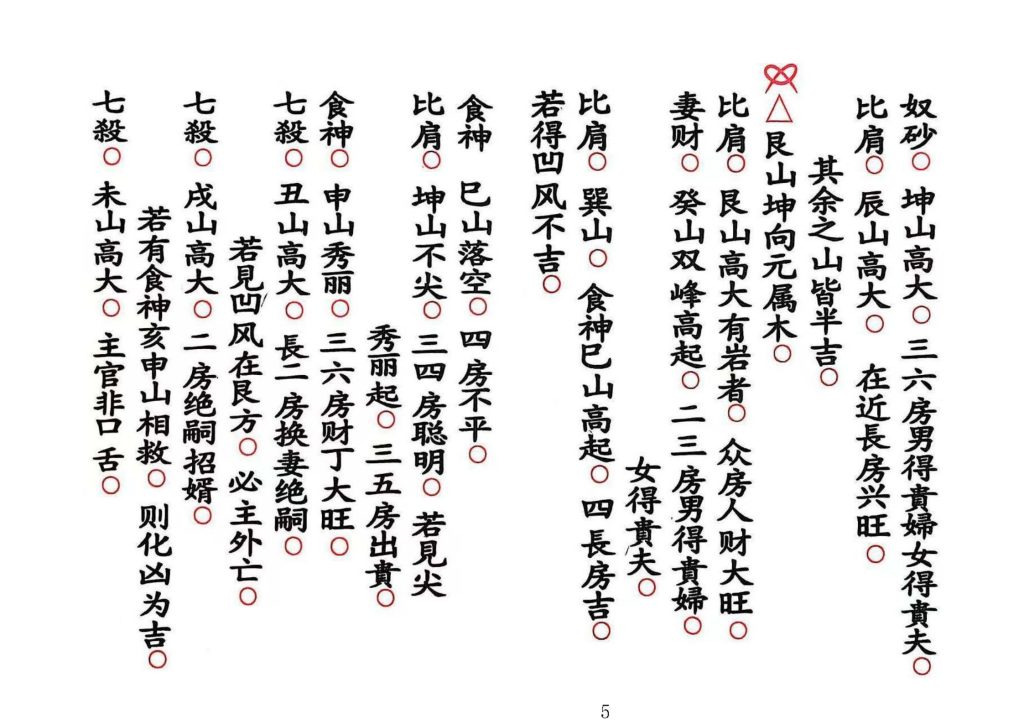 奴砂○坤山高大○三六房男得貴婦女得貴夫○
比肩○辰山高大○在近長房兴旺○
其余之山皆半吉○
△艮山坤向元属木○
比肩○艮山高大有岩者○众房人财大旺○
妻财○癸山双峰高起○二三房男得貴婦○
女得貴夫○
比肩○巽山○食神巳山高起○四長房吉○
若得凹风不吉○
食神 巳山落空○四房不平○
比肩○坤山不尖○三四房聪明○若見尖
秀丽起○三五房出貴○
食神○申山秀丽○三六房财丁大旺○
七殺○丑山高大○長二房换妻绝嗣○
若見凹风在艮方○必主外亡○
七殺○戌山高大○二房绝嗣招婿○
若有食神亥申山相救○则化凶为吉○
七殺○未山高大○主官非口舌○
5